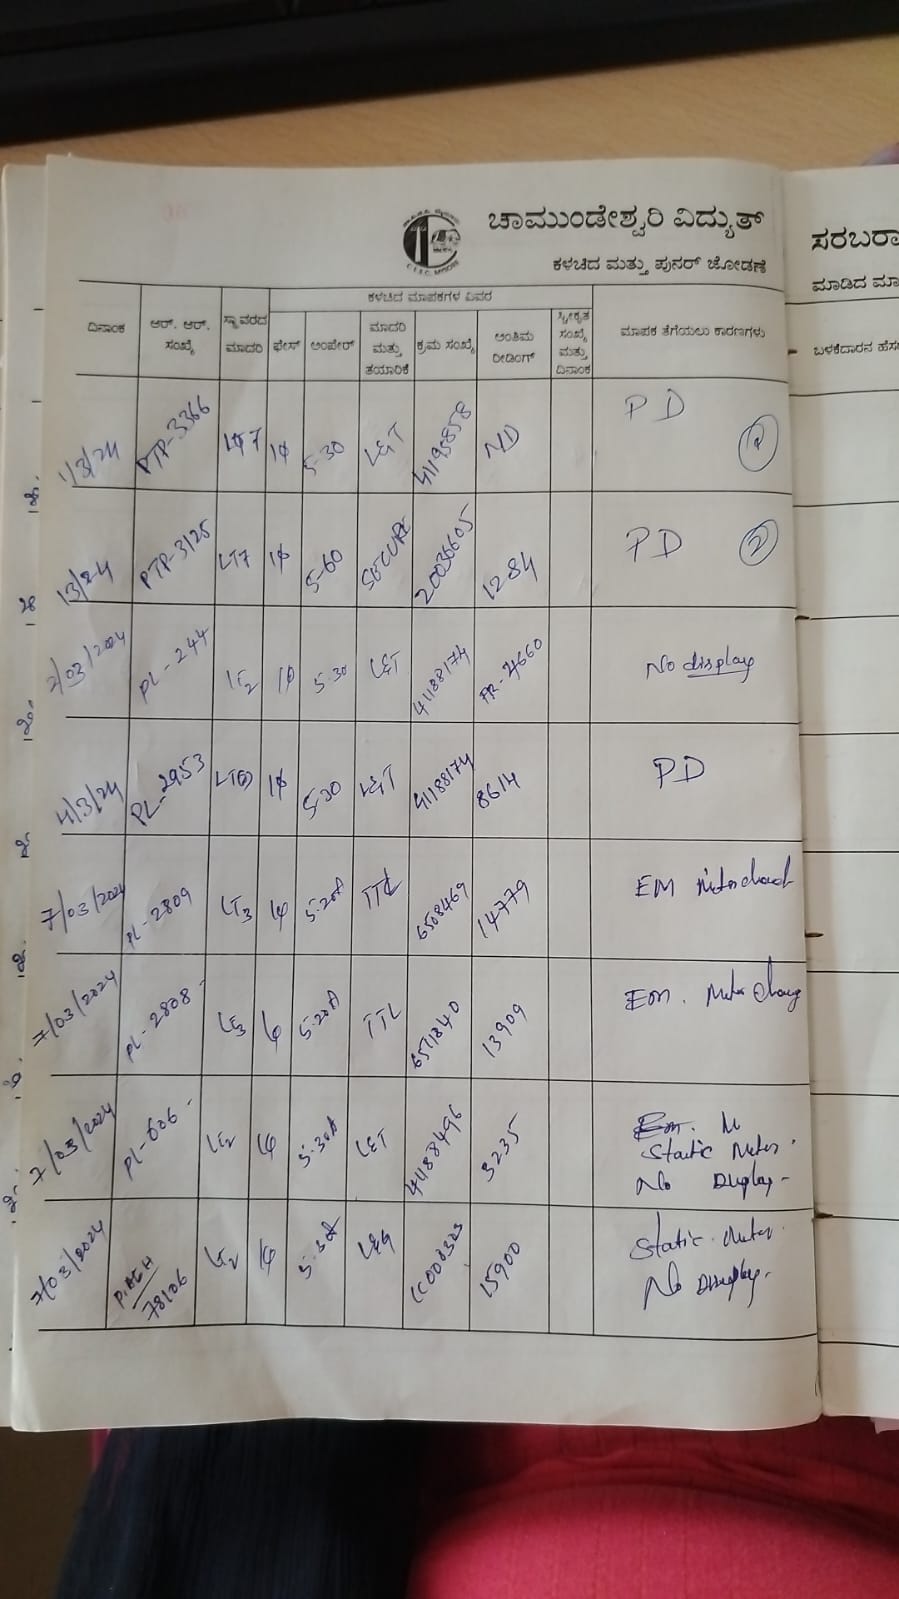 ಚಾಮುಂಡೇಶ್ವರಿ ವಿದ್ಯುತ್
ಸರಬರಾ
ಕಳಚಿದ ಮತ್ತು ಪುನರ್ ಜೋಡಣೆ
ಮಾಡಿದ ಮಾ
ಕಳಚಿದ ಮಾಪಕಗಳ ವಿವರ
ದಿನಾಂಕ ಆರ್. ಆರ್. ಸಂಖ್ಯೆ ಸ್ಥಾವರದ ಮಾದರಿ ಫೇಸ್ ಅಂಪೇರ್ ಮಾದರಿ ಮತ್ತು ತಯಾರಿಕೆ ಕ್ರಮ ಸಂಖ್ಯೆ ಅಂತಿಮ ರೀಡಿಂಗ್ ಸ್ವೀಕೃತ ಸಂಖ್ಯೆ ಮತ್ತು ದಿನಾಂಕ ಮಾಪಕ ತೆಗೆಯಲು ಕಾರಣಗಳು
ಬಳಕೆದಾರನ ಹೆಸ
1/3/24 PTP-3366 LT7 1ϕ 5-30 L&T 41195858 ND PD
13/24 PTP-3125 LT7 1ϕ 5-60 SECURE 20036605 1284 PD 2
2/03/2024 PL-244 LT2 1ϕ 5-30 L&T 41188174 No display
4/3/24 PL-2953 1ϕ 5-30 L&T 41188174 8614 PD
7/03/2024 PL-2809 LT3 1ϕ 5-20A TTL 6508469 14779 EM
7/03/2024 PL-2808- LT3 1ϕ 5-20A TTL 6511840 13909 EM. Meter Chang
7/03/2024 PL-606- LT2 1ϕ 5-30A L&T 41188496 3235
Static Meter.
No Display-
7/03/2024 78106 LT2 1ϕ 5-30A L&G 15900 Static Meter.
No Display-